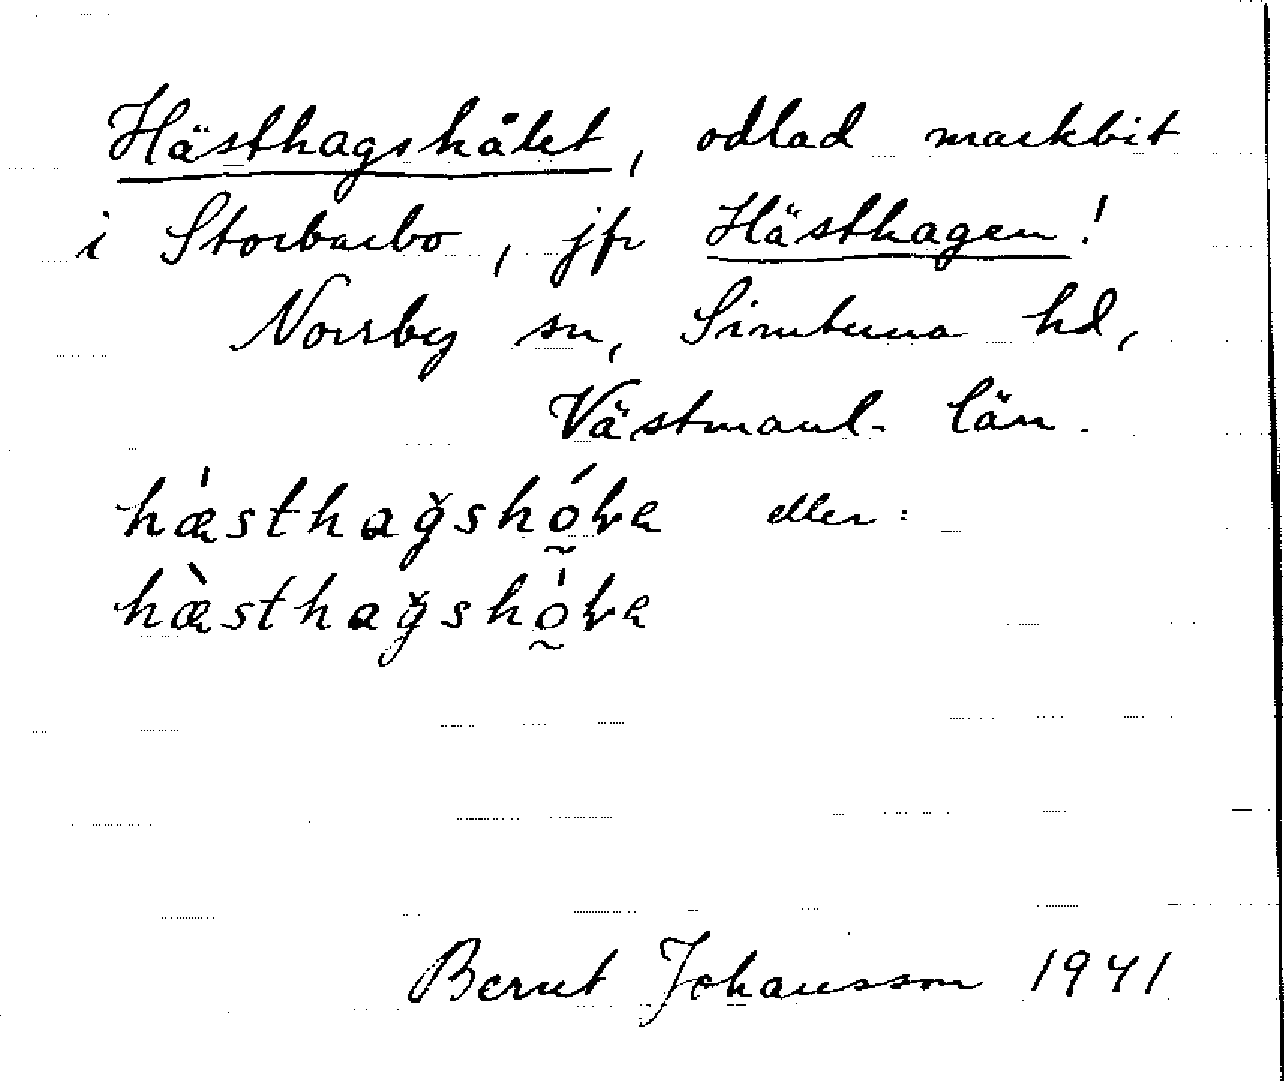 Hästhagshålet, odlad markbit
i Storbarbo, jfr Hästhagen!
Norrby sn, Simtuna hd,
Västmanl. län.
eller:
Bernt Johansson 1941